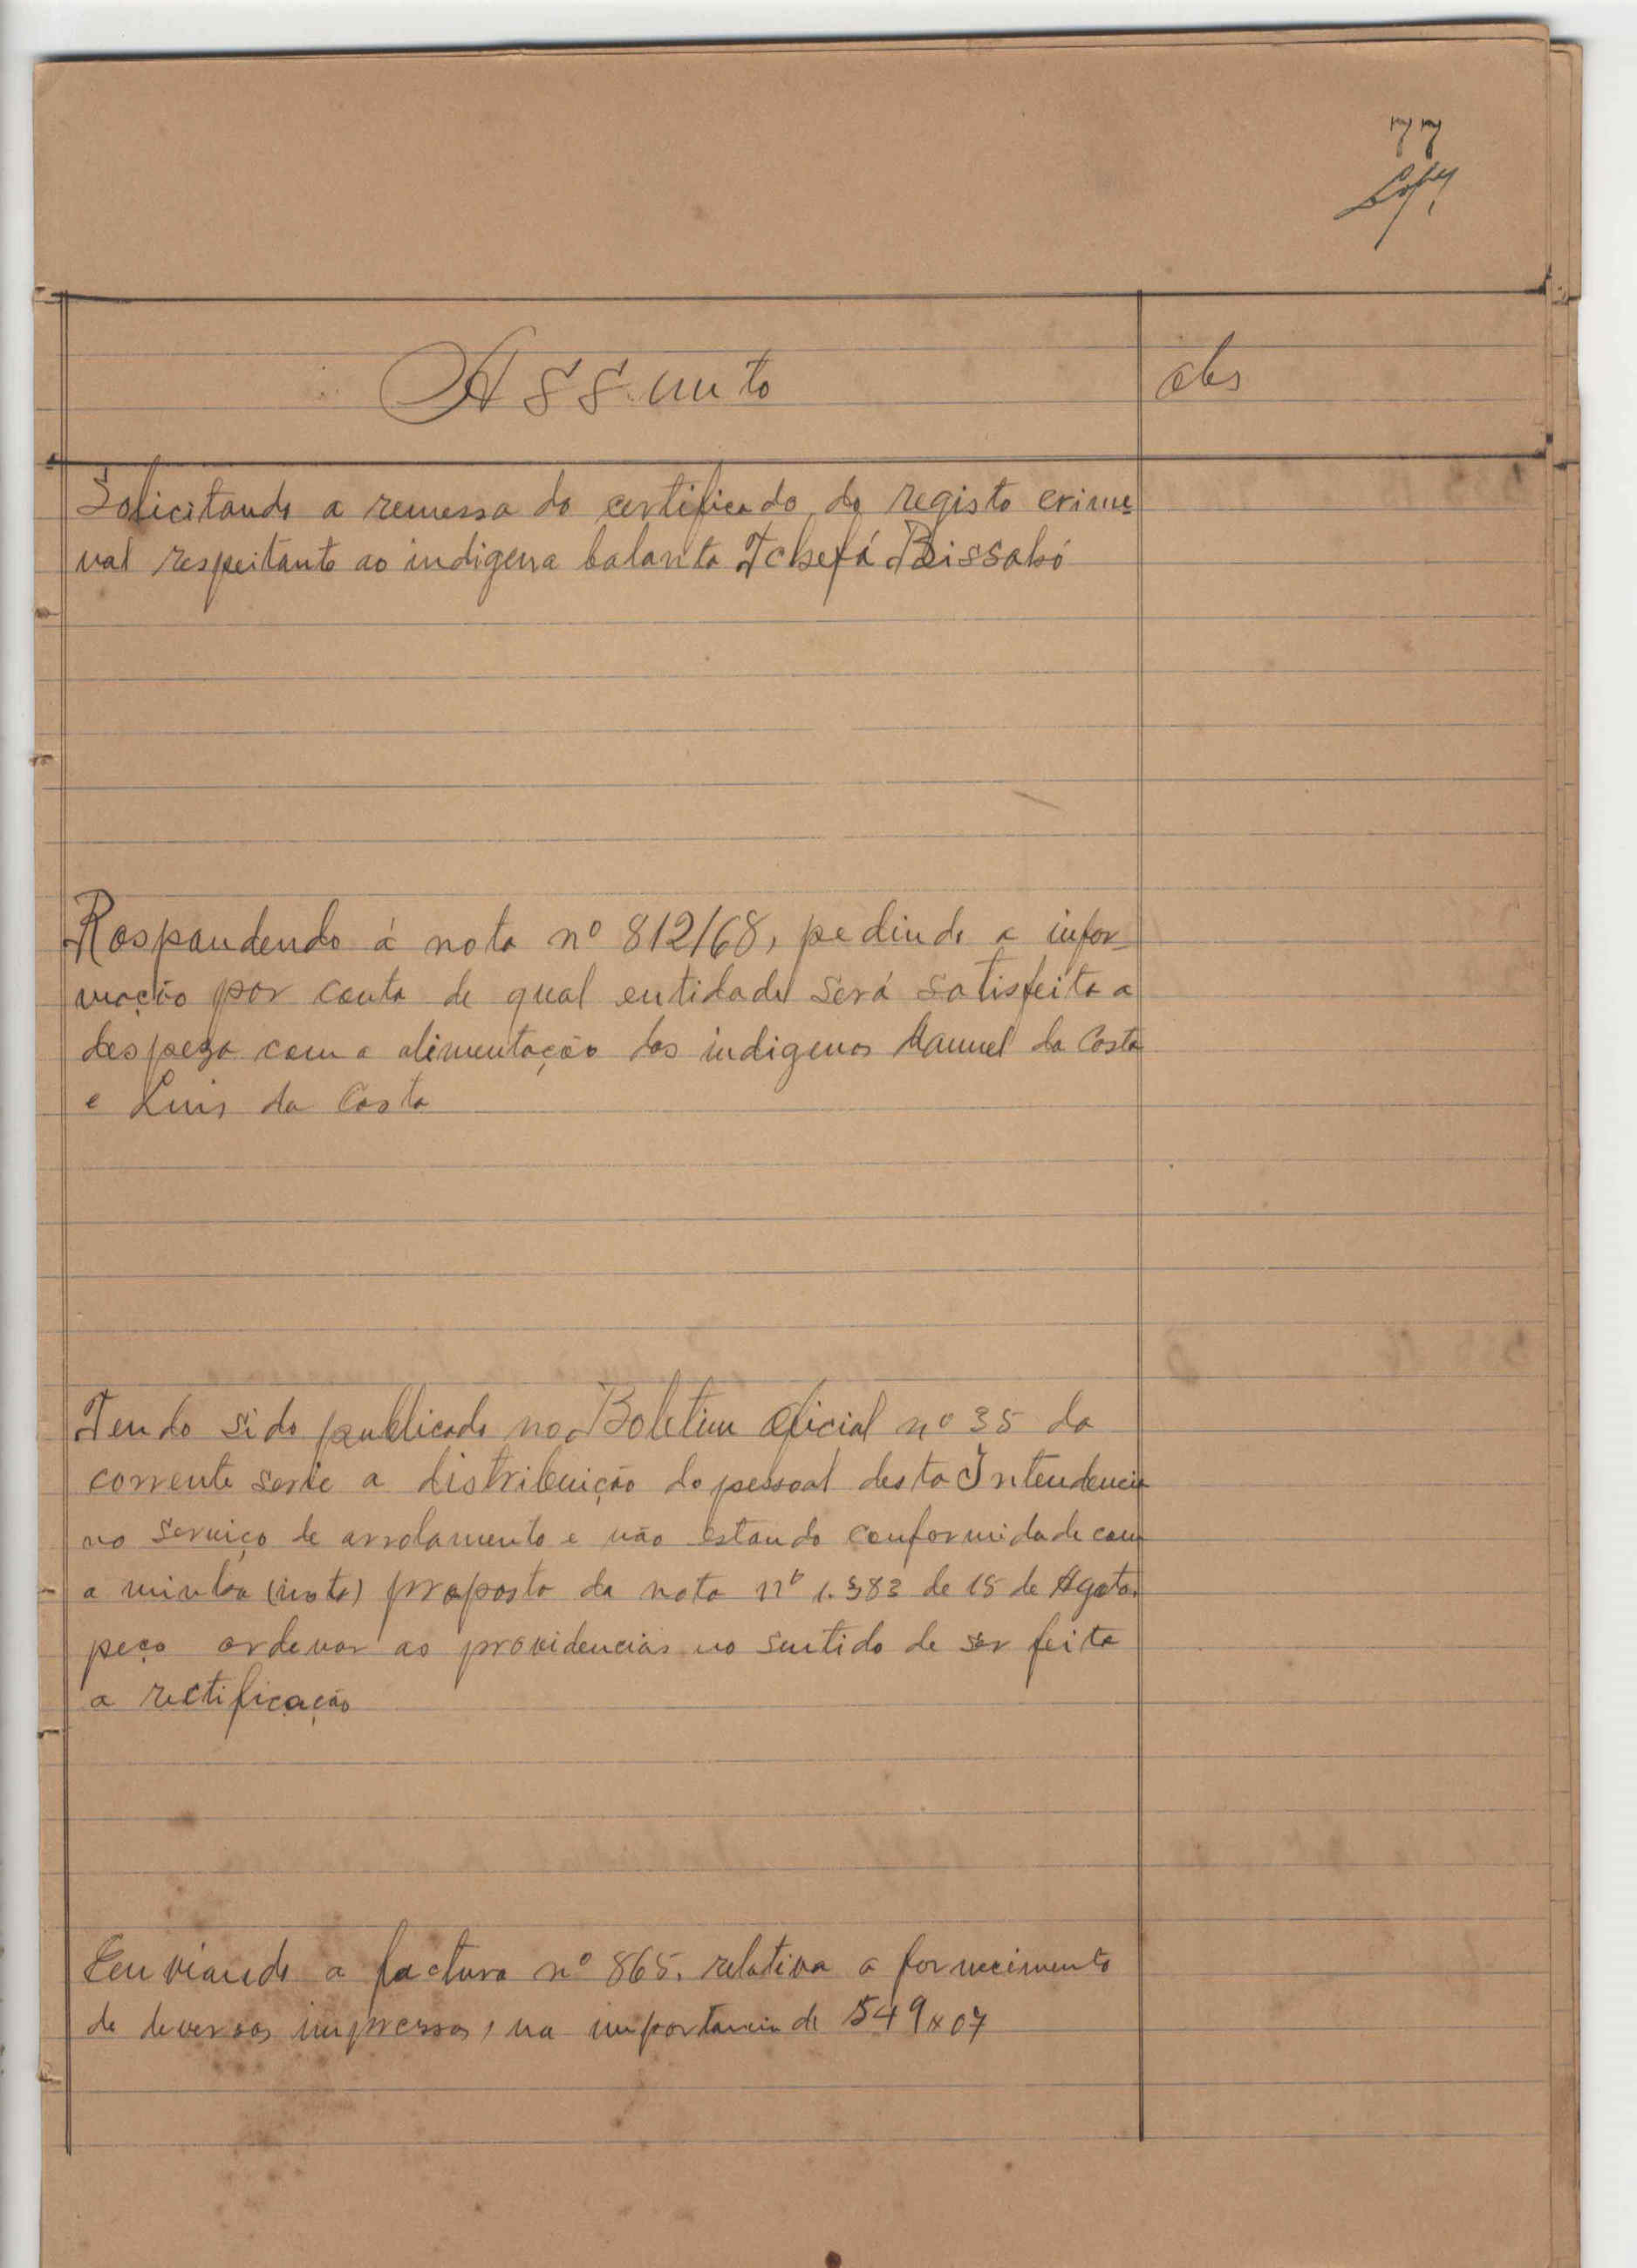 77
Assunto
obs
Solicitando a remessa do certificado do registo crime
nal respeitante ao indigena balanta Tchefá Bissabó
Respondendo á nota nº 812/68, pedindo a infor-
mação por conta de qual entidade será satisfeita a
despeza com a alimentação dos indigenas Manuel da Costa
e Luis da Costa
Tendo sido publicado no Boletim oficial nº 35 da
corrente serie a distribuição do pessoal desta Intendencia
no serviço de arrolamento e não estando conformidade com
a minha (nota) proposta da nota nº 1.383 de 15 de Agosto.
peço ordenar as providencias no sentido de ser feita
a rectificação
Enviando a factura nº 865. relativa a fornecimento
de diversos impressos, na importancia de 549x07